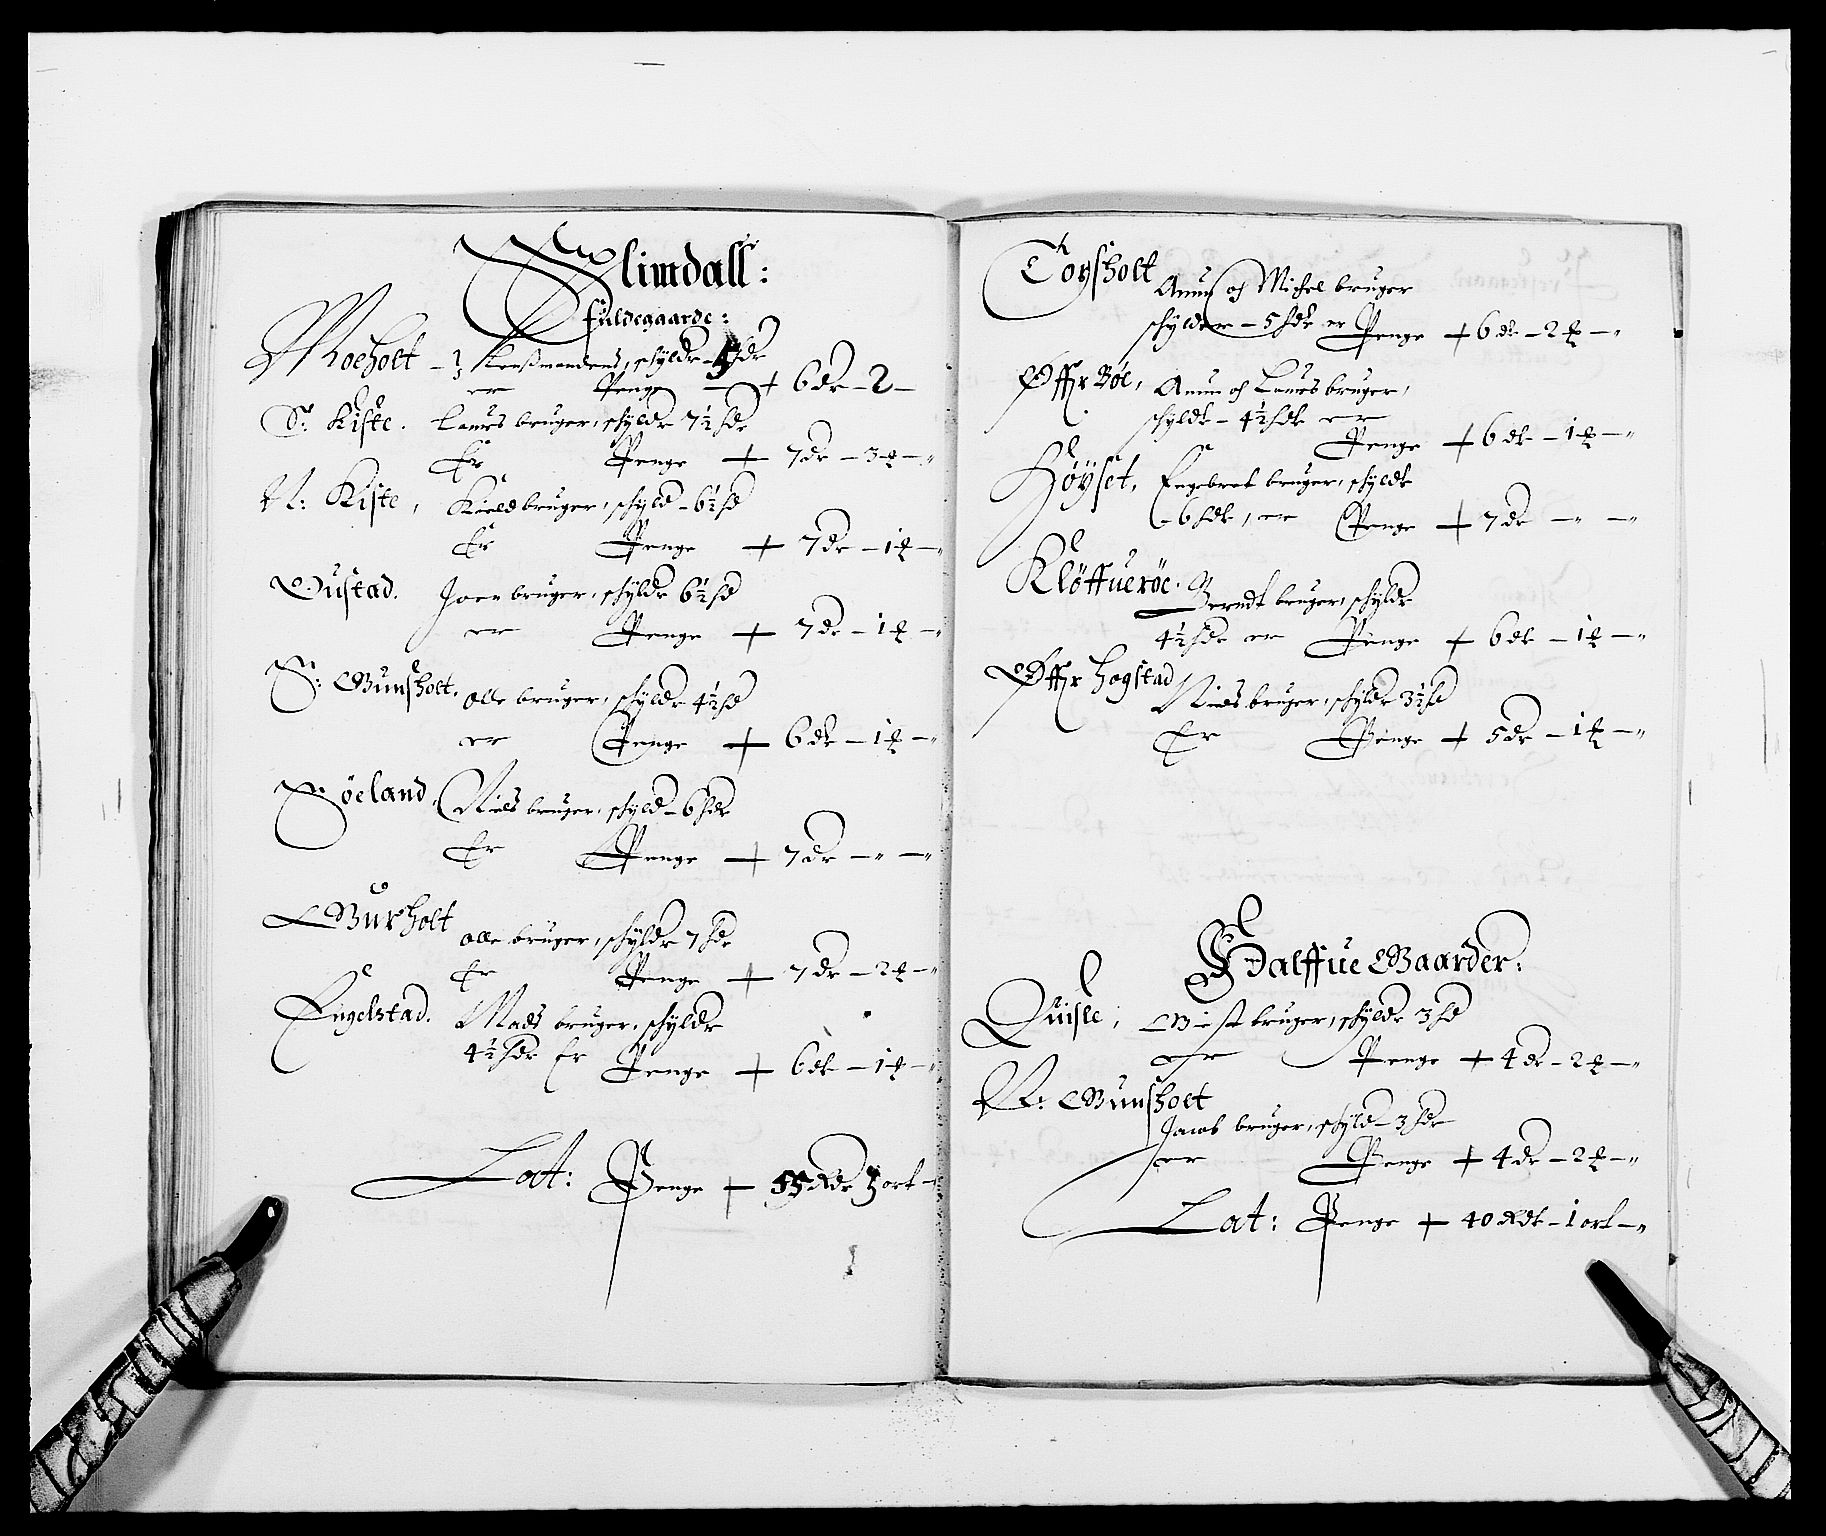 Slimdall:
Fuldegaarde:
Moeholt – schylder
er Penge – + 6 dr – 2 –
S: Kiste. Laures bruger, schylder 7½ hdr
Er Penge + 7 dr – 3 ꝑ – "
N: Kiste, Kield bruger, schyld – 6½ hd
Er Penge + 7 dr – 1 ꝑ – "
Oustad. Joen bruger, schylder 6½ hd
er Penge + 7 dr – 1 ꝑ – "
S: Gunsholt. Olle bruger, schylder 4½ hd
er Penge + 6 dr – 1 ꝑ – "
Söeland. Niels bruger, schyld – 6 hdr
Er Penge + 7 dr – " – "
Gurholt Olle bruger, schylder 7 hdr
Er Penge + 7 dr – 2 ꝑ – "
Engelstad. Mads bruger, schylder
4½ hdr Er Penge + 6 dr – 1 ꝑ – "
Lat: Penge + 55 Rdr 3 ort –
Toysholt Anun och Michel bruger
schylder – 5 hdr er Penge + 6 dr – 2 ꝑ – "
Øffr Böe, Anun och Laures bruger,
schyldr – 4½ hdr er
Penge + 6 dr – 1 ꝑ – "
Höÿset, Engebret bruger, schyldr
– 6 hdr, er Penge + 7 dr – " – "
Klöffueröe. Berndt bruger, schylder
4½ hdr er Penge + 6 dr – 1 ꝑ – "
Øffr Hogstad Niels bruger, schylder 3½ hd
Er Penge + 5 dr – 1 ꝑ – "
Halffue Gaarder:
Quisle, bruger, schylder 3 hd
er Penge + 4 dr – 2 ꝑ – "
N: Gunsholt
Jacob bruger, schyld – 3 hdr
er Penge + 4 dr – 2 ꝑ – "
Lat: Penge + 40 Rdr – 1 ort – "